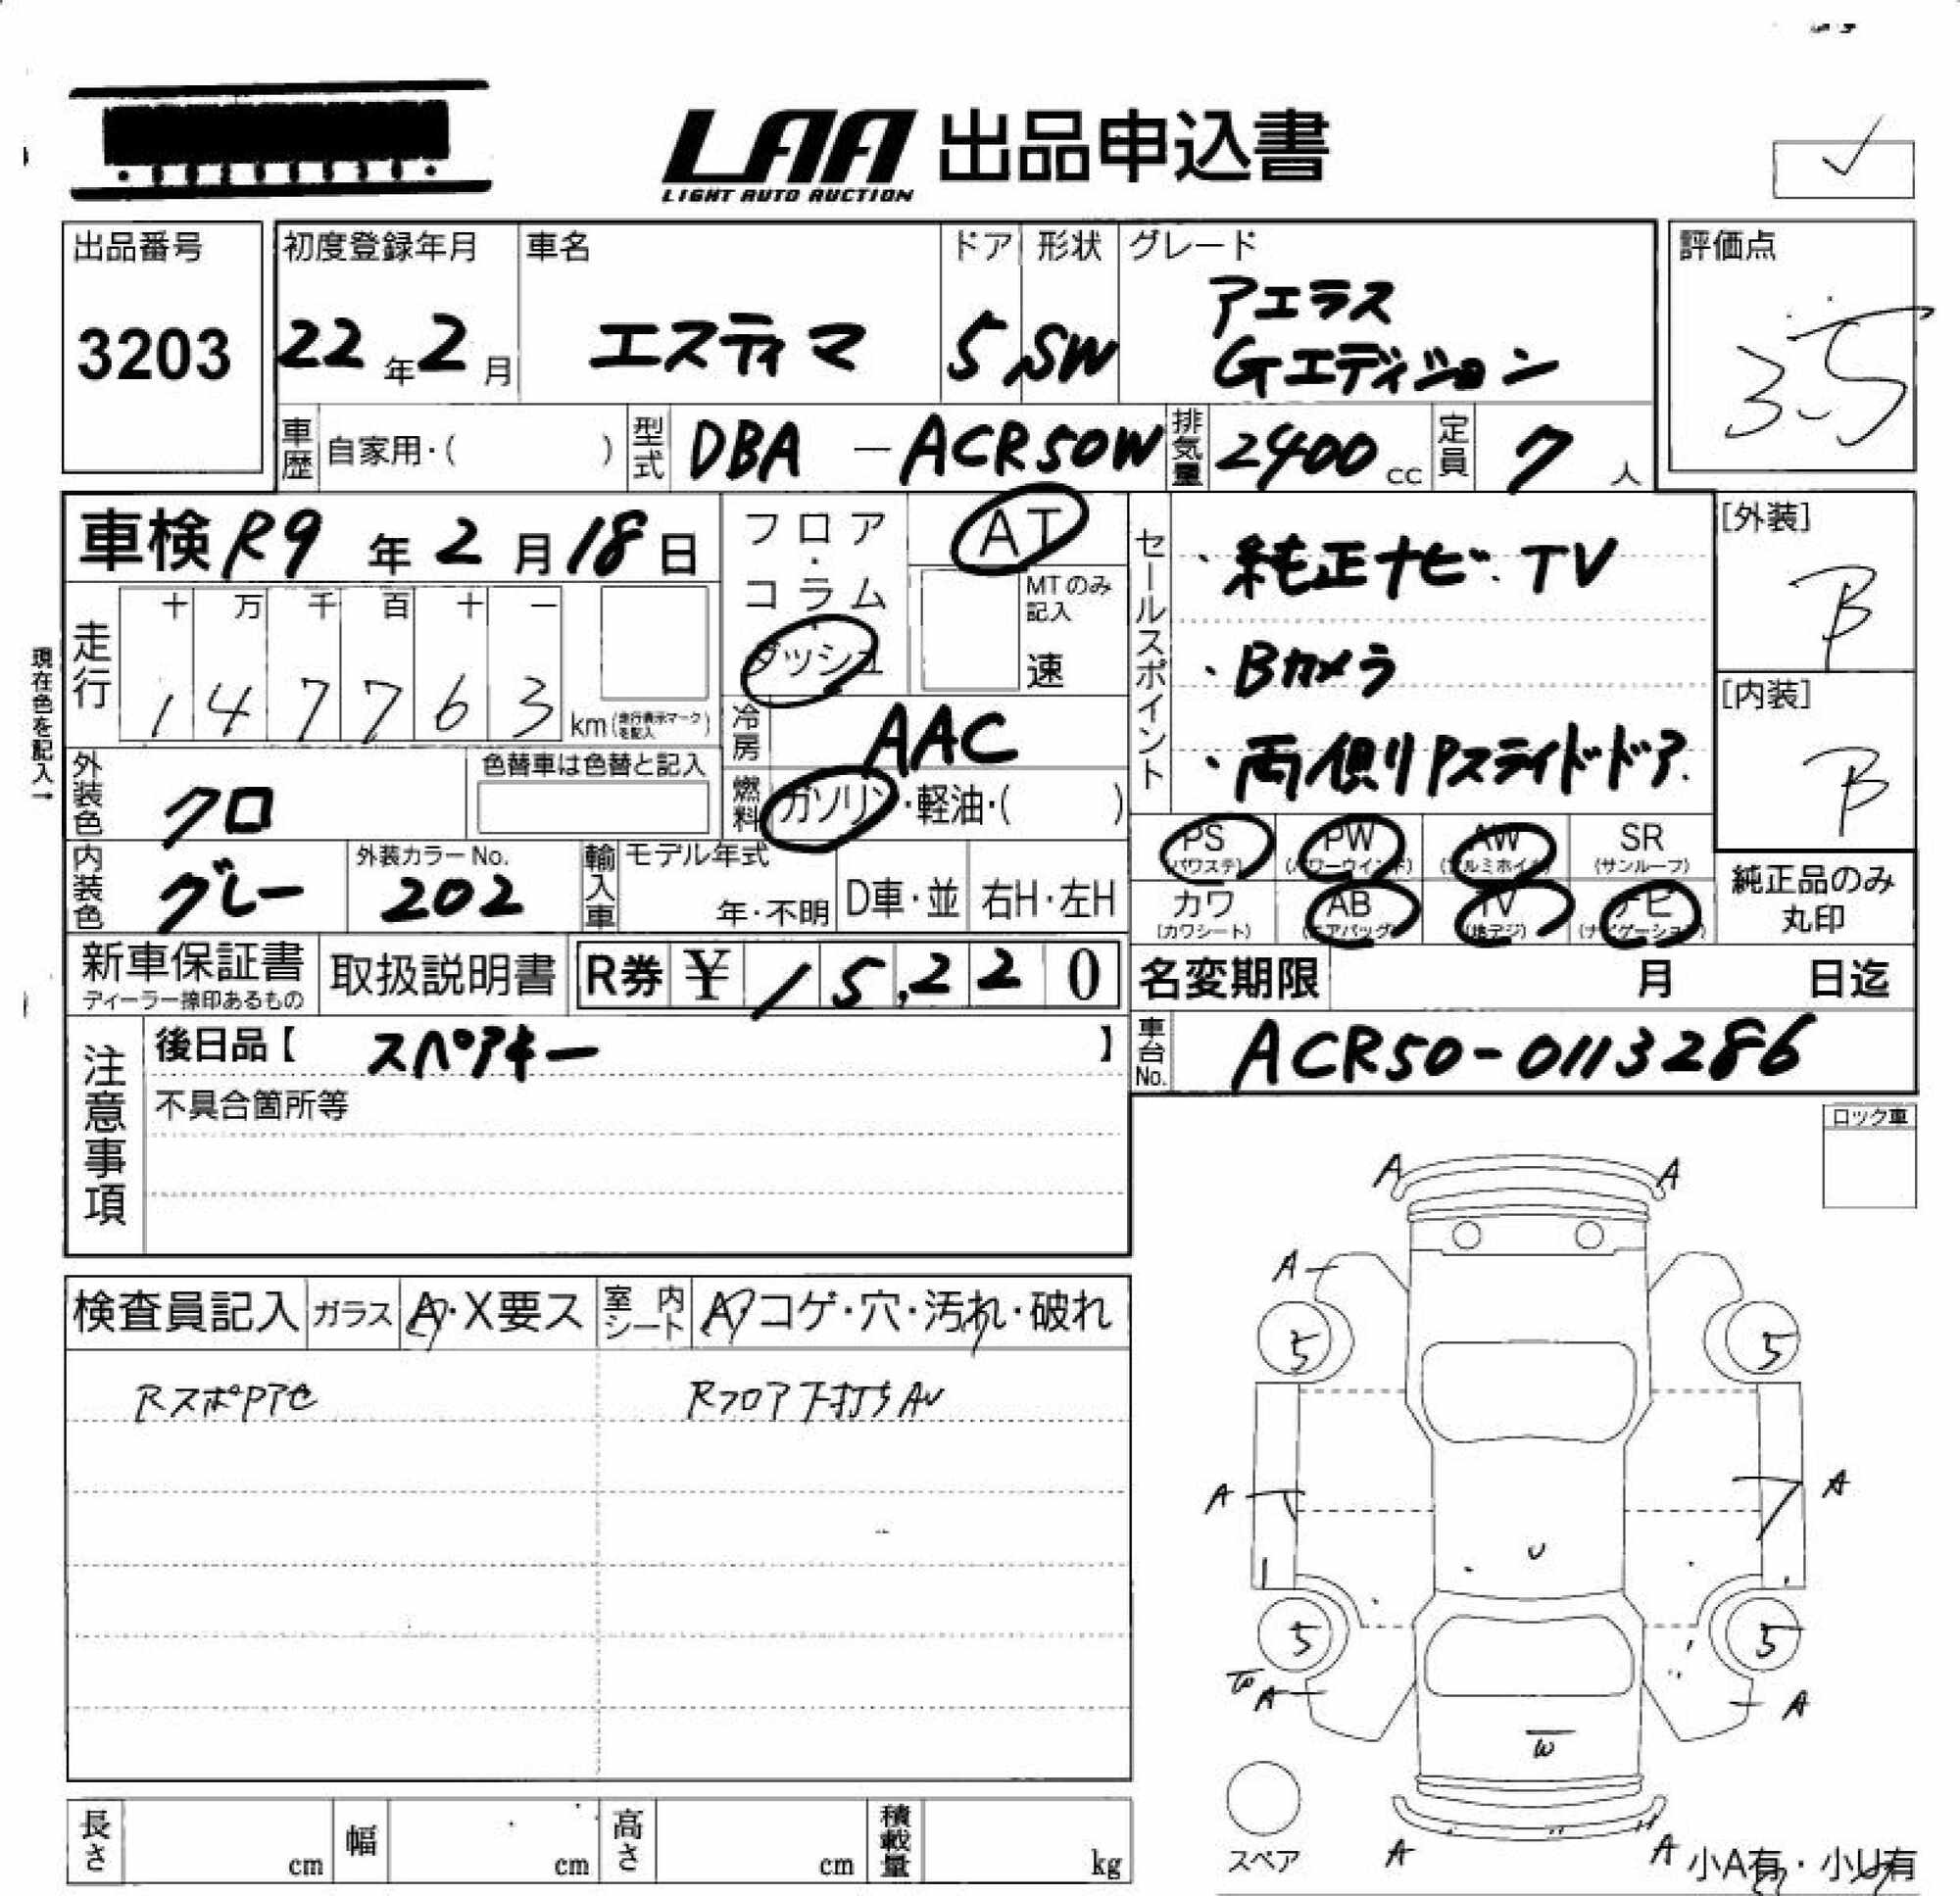 LAA 出品申込書
LIGHT AUTO AUCTION
出品番号
3203
初度登録年月
22年2月
車名
エスティマ
ドア
5
形状
SW
グレード
アエラス
Gエディション
評価点
3.5
車歴 自家用・( )
型式 DBA-ACR50W
排気量 2400cc
定員 7人
車検 R9年2月18日
走行
十 万 千 百 十 一
1 4 7 7 6 3 km(走行表示マークを記入)
現在色を記入→
フロア・コラム
ダッシュ
AT
MTのみ記入
速
冷房 AAC
燃料 ガソリン・軽油・( )
セールスポイント
・純正ナビ.TV
・Bカメラ
・両側Pスライドドア.
[外装]
B
[内装]
B
外装色 クロ
色替車は色替と記入
内装色 グレー
外装カラーNo.
202
輸入車 モデル年式
年・不明
D車・並
右H・左H
PS (パワステ)
PW (パワーウインド)
AW (アルミホイル)
SR (サンルーフ)
カワ (カワシート)
AB (エアバッグ)
TV (地デジ)
ナビ (ナビゲーション)
純正品のみ丸印
新車保証書
ディーラー捺印あるもの
取扱説明書
R券 ¥ 15,220
名変期限 月 日迄
車台No. ACR50-0113286
注意事項
後日品【 スペアキー 】
不具合箇所等
ロック車
検査員記入 ガラス A・X要ス
室内シート A・コゲ・穴・汚れ・破れ
RスポPア色
Rフロア下打ちAU
A A
A
5 5
A A
U
5 5
A A
W
スペア
A A
小A有・小U有
長さ cm
幅 cm
高さ cm
積載量 kg